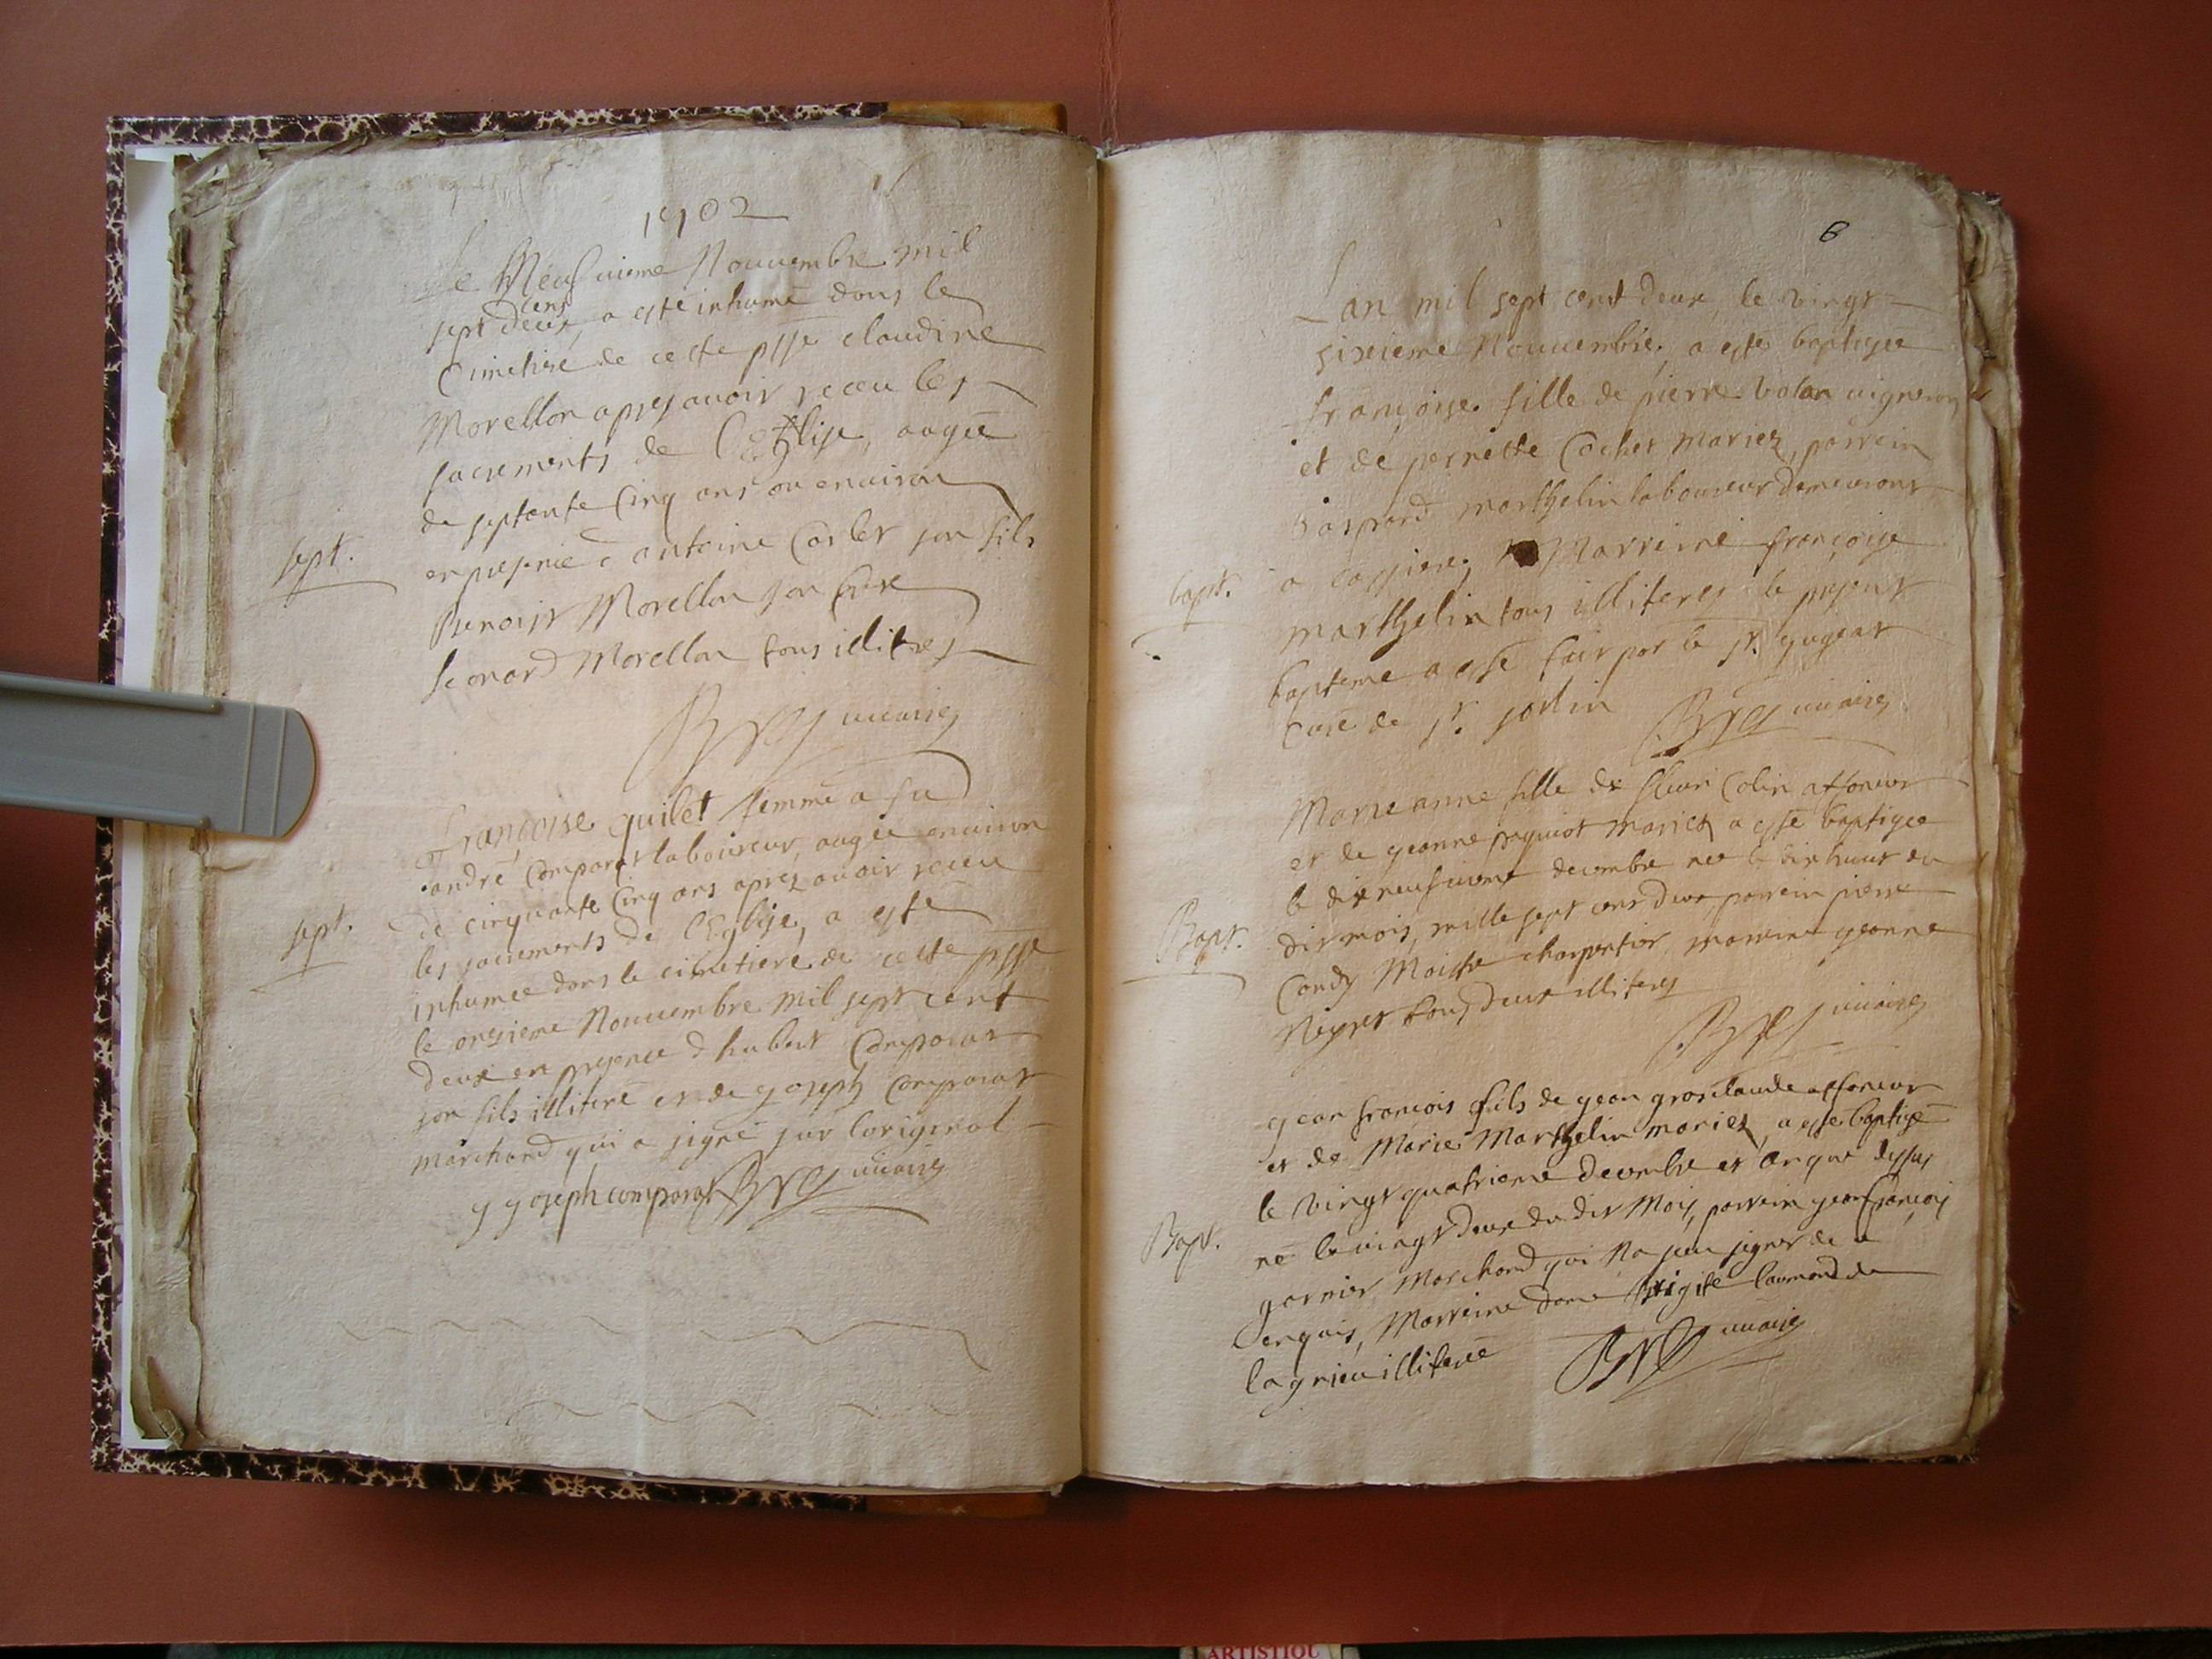 1702
Le Neufuieme Nouuembre mil
sept cens deux, a esté inhumé dans le
Cimetire de ceste psse claudine
Morellon apres auoir receu les
sacrements de l'Eglise, augée
de septante Cinq ans ou enuiron
en presence d antoine Carlet son fils
sept.
Benoist Morellon son frere
leonard Morellon tous illitres
Françoise quilet femme a fu
andré Comparat laboureur, augée enuiron
de cinquante Cinq ans apres auoir receu
sept.
les sacrements de l'Eglise, a esté
inhumée dans le cimetiere de ceste psse
le onzieme Nouuembre mil sept cent
deux en presence d hubert Comparat
son fils illiteré et de yoseph Comparat
marchand qui a signé sur l'original
yoseph comparat
6
Lan mil sept cent deux, le vingt
sixieme Nouuembre, a esté baptizée
françoise fille de pierre volan uigneron
et de pernette Cochet mariez, parrein
Gaspard marthelin laboureur demeurant
a Marreine françoise
bapt.
marthelin tous illiteres le present
bapteme a esté fait par le sr. gugeat
Curé de st. jorlin
Marie anne fille de fleuri Colin affaneur
et de yeanne paquiot mariez a esté baptizée
le dixneufuieme decembre née le dixhuit du
Bapt.
dit mois, mille sept cens deux, parrein pierre
Condy Maistre charpentier marreine yeanne
tous deux illiteres
yean francois fils de yean grosclaude affaneur
et de Marie Marthelin mariez, a esté baptizé
le vingt quatrieme decembre et an que dessus
né le vingt deux du dit Mois, parrein yean françois
Bapt.
garnier Marchand qui Na sceu signer de ce
enquis, Marreine dame brigite laumond de
lagrieu illiterée